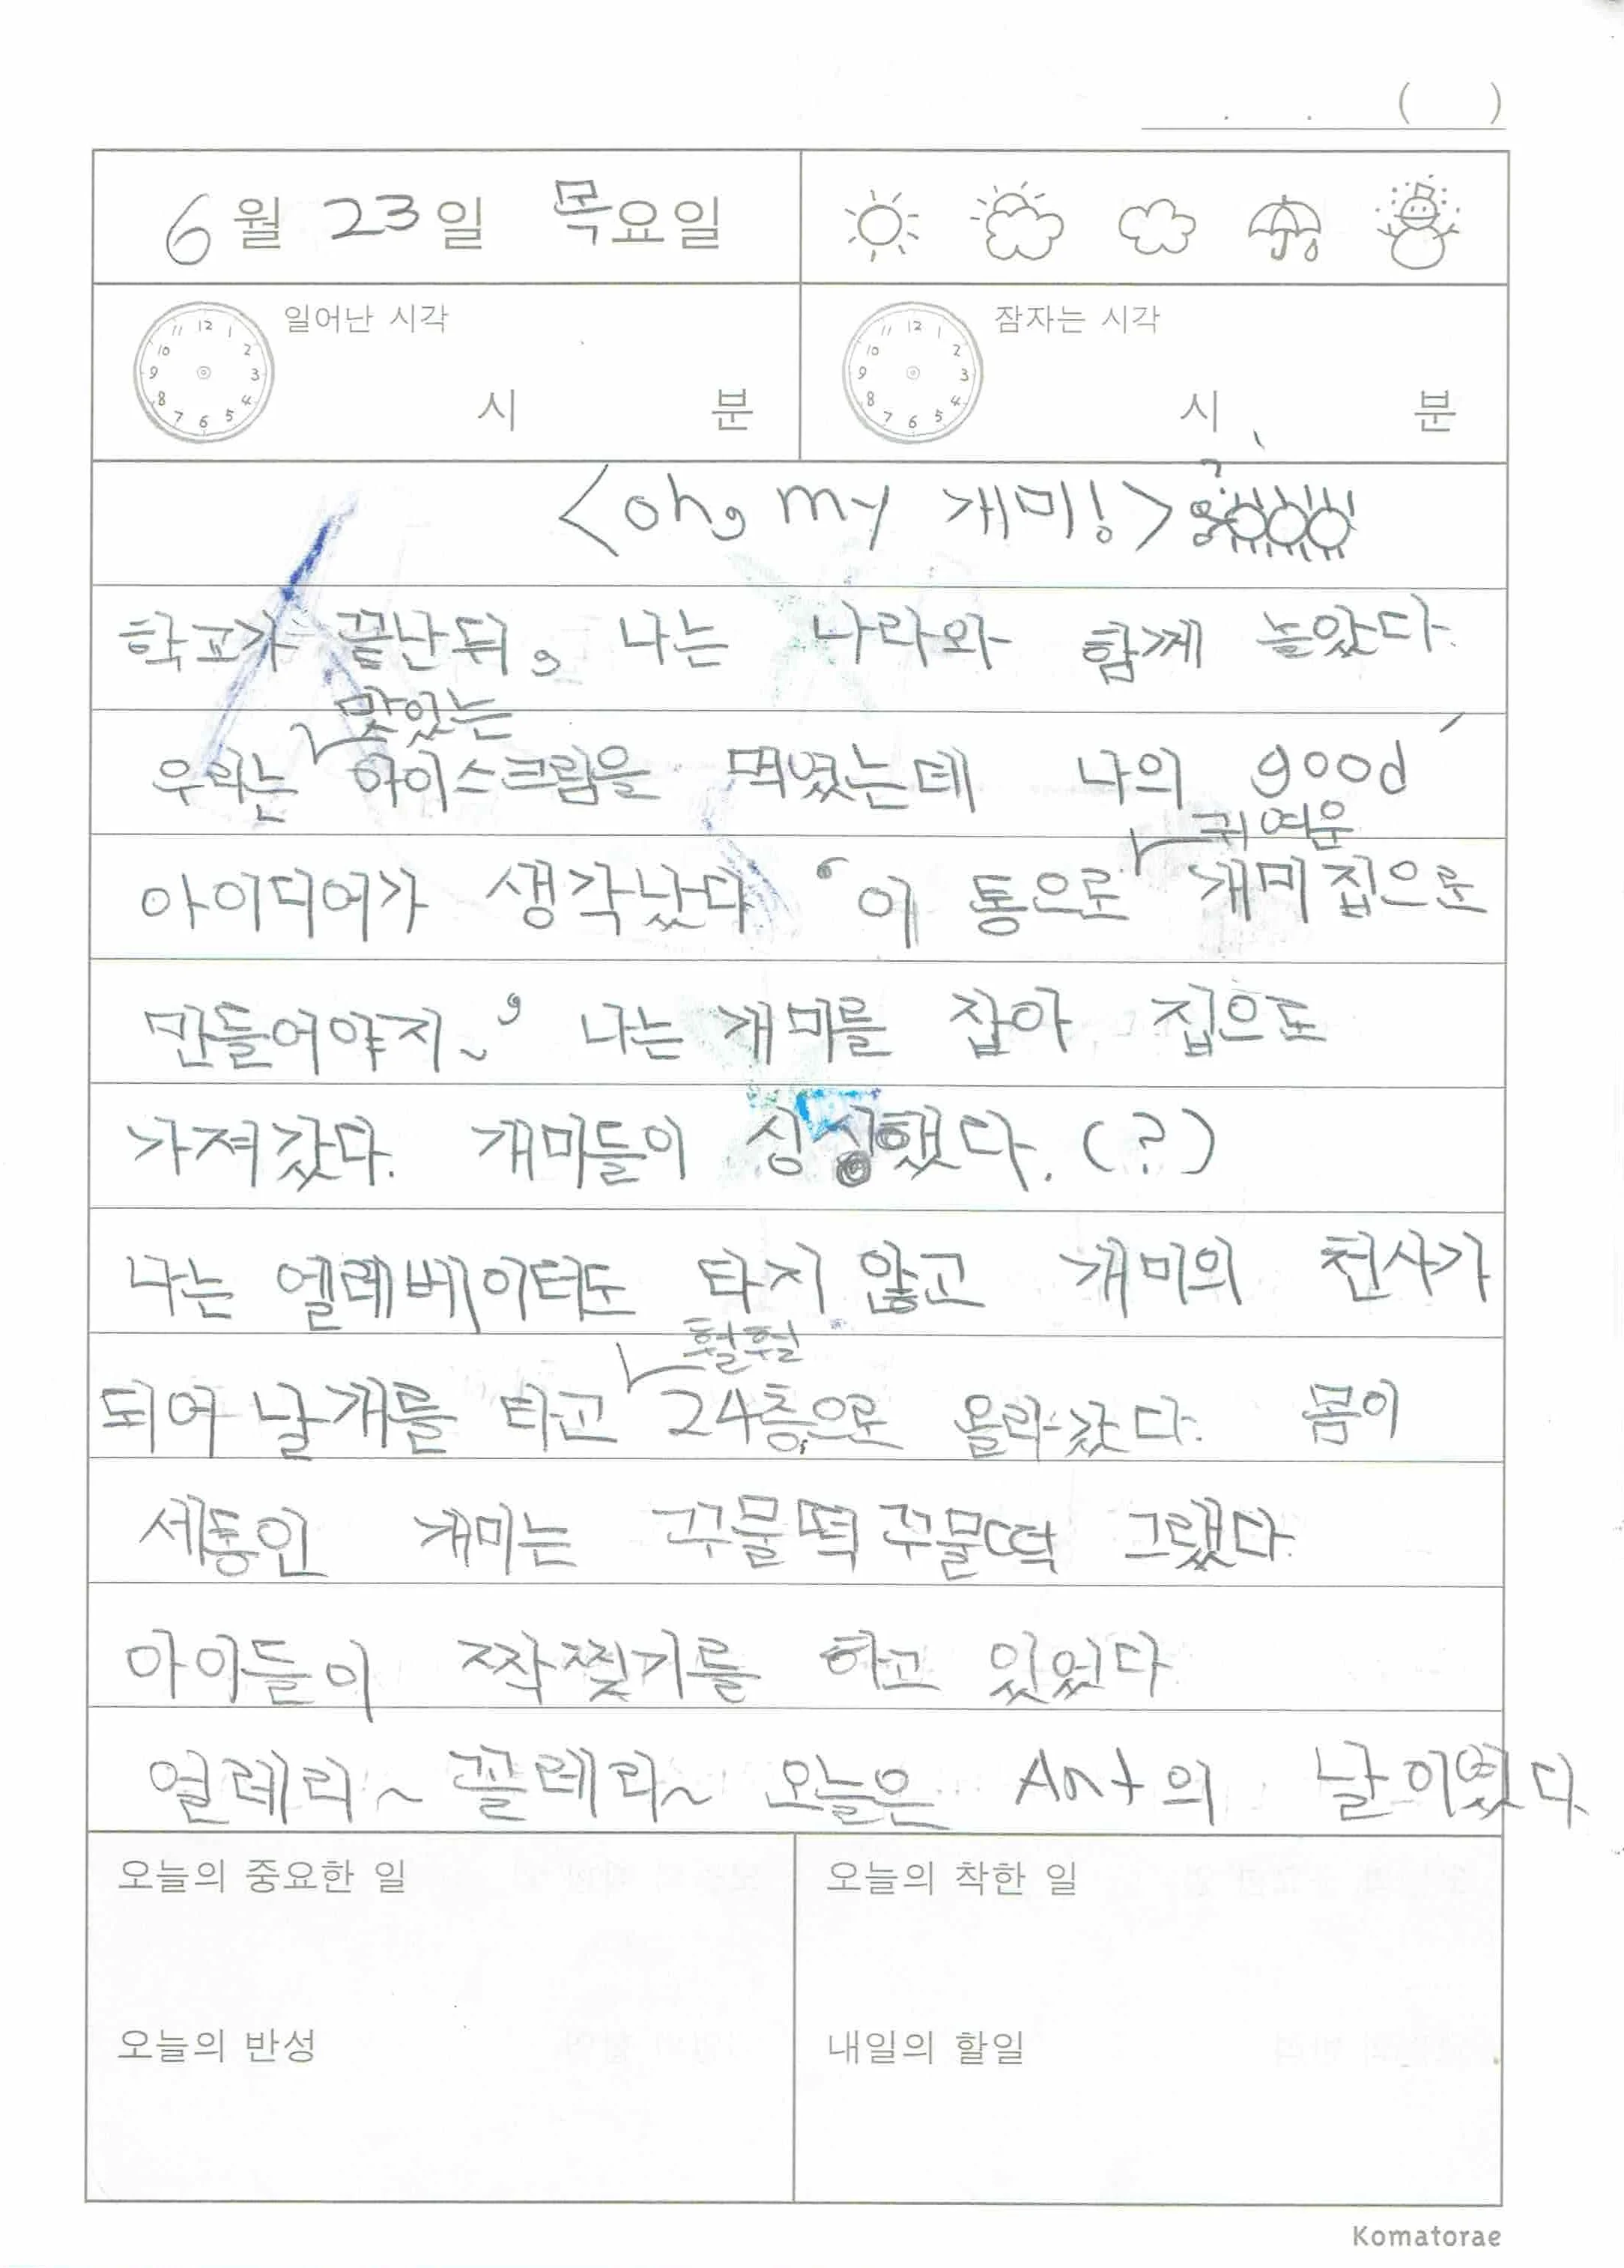 . . ( )
6월 23일 목요일
일어난 시각
잠자는 시각
12 1 2 3 4 5 6 7 8 9 10 11
12 1 2 3 4 5 6 7 8 9 10 11
시 분
시 분
<oh, my 개미!>
학교가 끝난뒤, 나는 나라와 함께 놀았다.
맛있는
우리는 아이스크림을 먹였는데 나의 good
귀여운
아이디어가 생각났다 '이 통으로 개미집으로
만들어야지~' 나는 개미를 잡아 집으로
가져갔다. 개미들이 싱싱했다. (?)
나는 엘레베이터도 타지 않고 개미의 천사가
훨훨
되어 날개를 타고 24층으로 올라갔다. 몸이
세통인 개미는 꾸물떡 꾸물떡 그랬다.
아이들이 짝찢기를 하고 있었다
얼레리~ 꼴레리~ 오늘은 Ant의 날이였다
오늘의 중요한 일
오늘의 착한 일
오늘의 반성
내일의 할일
Komatorae